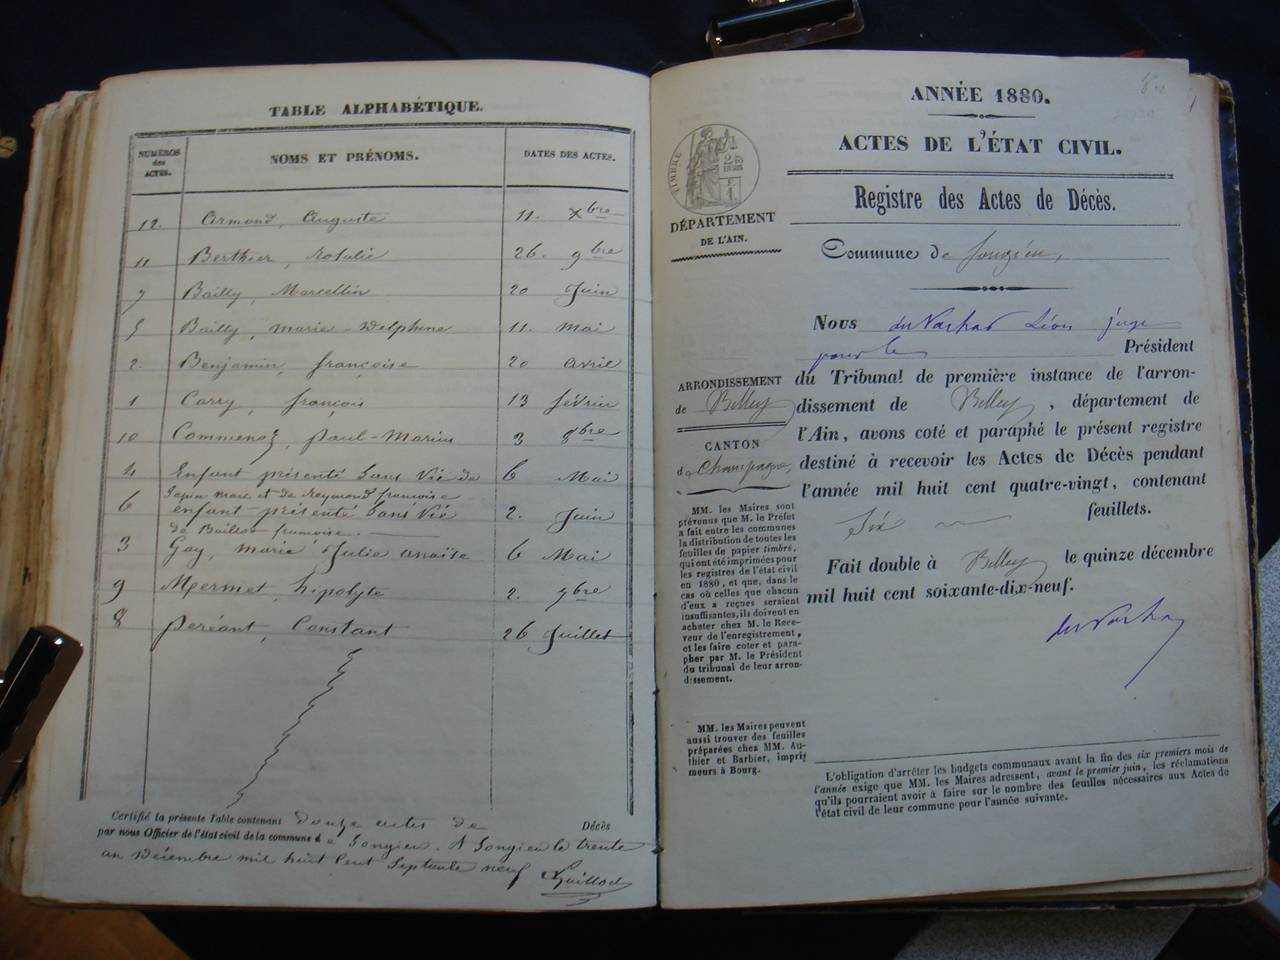 TABLE ALPHABÉTIQUE.
NUMÉROS des ACTES. NOMS ET PRÉNOMS. DATES DES ACTES.
12. Armand, Auguste 11. Xbre
11 Berthier, Rosalie 26. 9bre
7 Bailly, Marcellin 20 Juin
5 Bailly, marie-Delphine 11. mai
2. Benjamin, françoise 20 avril
1 Carry, françois 13 février
10 Commenoz, Paul-Marius 3 8bre
4 Enfant présenté Sans Vie de 6 Mai
Papin marc et de Reymond françoise
6 enfant présenté Sans Vie 2. Juin
de Baillod françoise.
3 Gay, marie Julie anaïse 6 Mai
9 Mermet, hipolyte 2. 7bre
8 peréant, Constant 26 Juillet
Certifié la présente Table contenant douze actes de Décès
par nous Officier de l'état civil de la commune d e Songieu. A Songieu le trente
un décembre mil huit Cent Septante neuf
Baillod
ANNÉE 1880.
ACTES DE L'ÉTAT CIVIL.
Registre des Actes de Décès.
TIMBRE
2/10
EN SUS
F.
1.
DÉPARTEMENT
DE L'AIN.
Commune de Songieu,
Nous Léon juge
pour le Président
du Tribunal de première instance de l'arron-
dissement de Belley, département de
l'Ain, avons coté et paraphé le présent registre
destiné à recevoir les Actes de Décès pendant
l'année mil huit cent quatre-vingt, contenant
Six feuillets.
Fait double à Belley le quinze décembre
mil huit cent soixante-dix-neuf.
ARRONDISSEMENT
de Belley
CANTON
de Champagne,
MM. les Maires sont
prévenus que M. le Préfet
a fait entre les communes
la distribution de toutes les
feuilles de papier timbré,
qui ont été imprimées pour
les registres de l'état civil
en 1880, et que, dans le
cas où celles que chacun
d'eux a reçues seraient
insuffisantes, ils doivent en
acheter chez M. le Rece-
veur de l'enregistrement,
et les faire coter et para-
pher par M. le Président
du tribunal de leur arron-
dissement.
MM. les Maires peuvent
aussi trouver des feuilles
préparées chez MM. Au-
thier et Barbier, impri-
meurs à Bourg.
L'obligation d'arrêter les budgets communaux avant la fin des six premiers mois de
l'année exige que MM. les Maires adressent, avant le premier juin, les réclamations
qu'ils pourraient avoir à faire sur le nombre des feuilles nécessaires aux Actes de
l'état civil de leur commune pour l'année suivante.